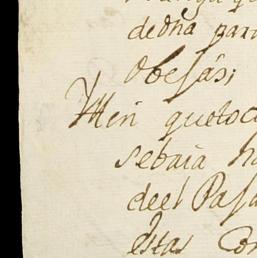 dedha para
Obejas;
Ytten quetoca
sebaia ha
deel Pasa
estas Con